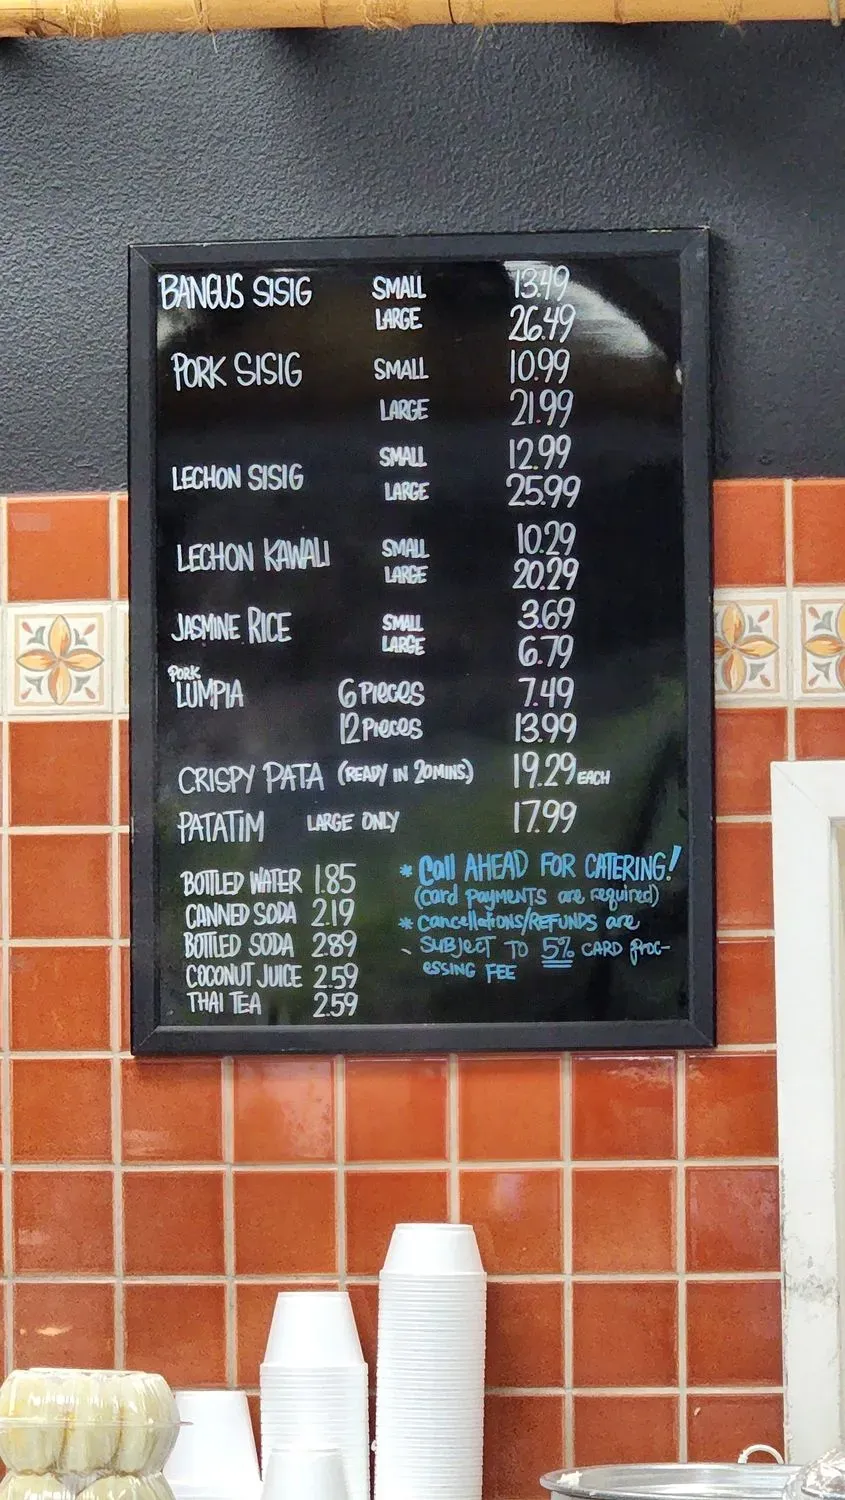 BANGUS SISIG SMALL 13.49
LARGE 26.49
PORK SISIG SMALL 10.99
LARGE 21.99
SMALL 12.99
LECHON SISIG LARGE 25.99
LECHON KAWALI SMALL 10.29
LARGE 20.29
JASMINE RICE SMALL 3.69
LARGE 6.79
PORK
LUMPIA 6 PIECES 7.49
12 PIECES 13.99
CRISPY PATA (READY IN 20MINS.) 19.29 EACH
PATATIM LARGE ONLY 17.99
BOTTLED WATER 1.85
CANNED SODA 2.19
BOTTLED SODA 2.89
COCONUT JUICE 2.59
THAI TEA 2.59
* Call AHEAD FOR CATERING!
(card payments are required)
* cancellations/REFUNDS are
SUBJECT TO 5% CARD proc-
essing FEE